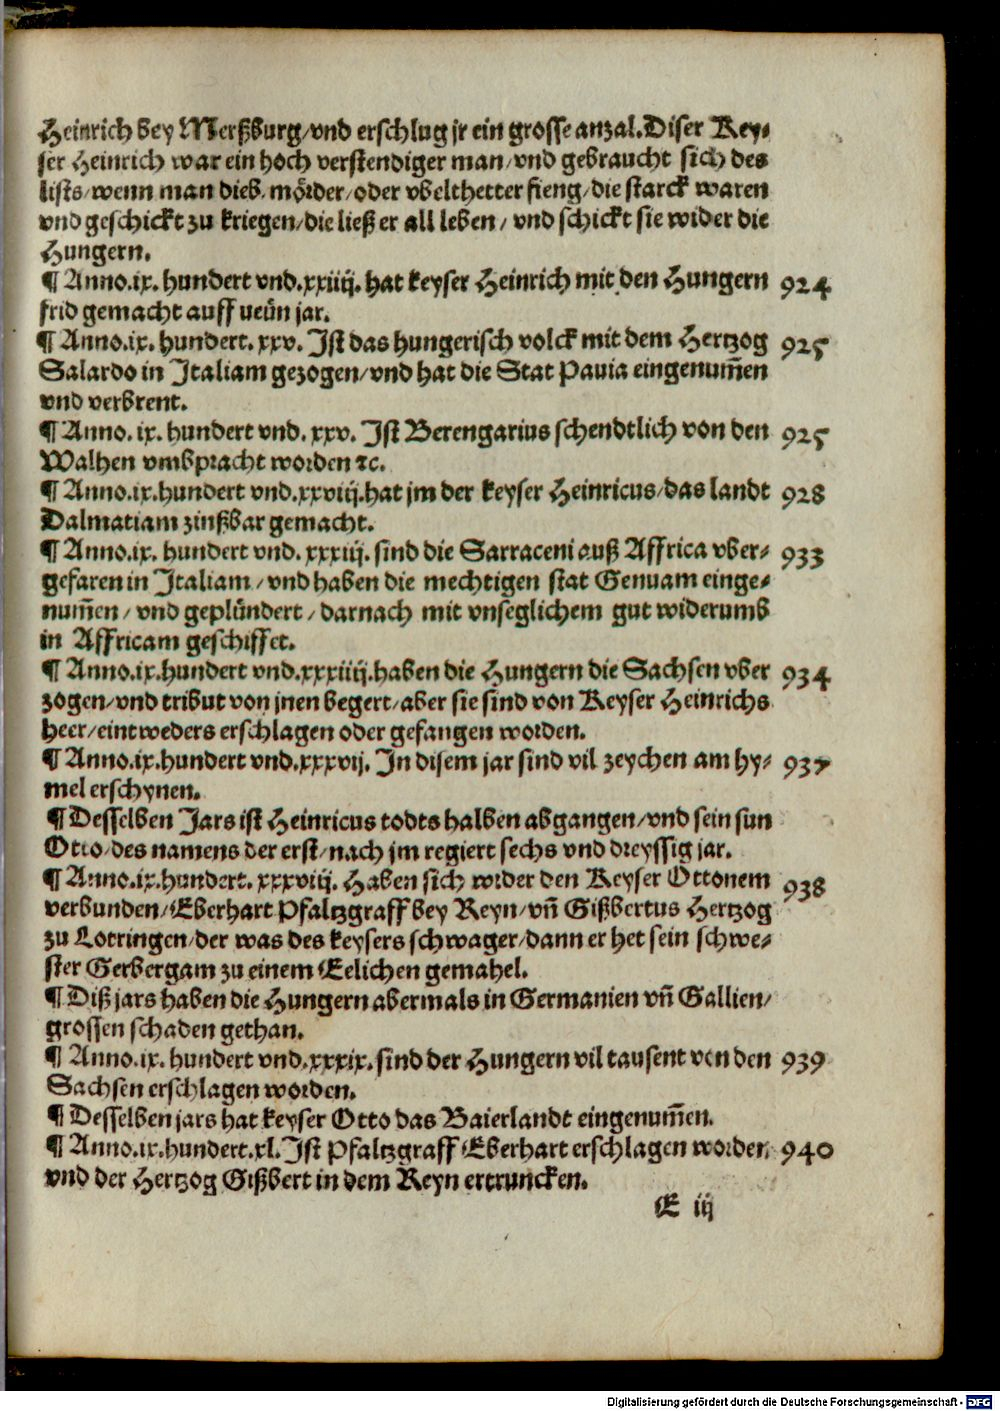 Heinrich bey Merßburg/vnd erschlug jr ein grosse anzal. Diser Key-
ser Heinrich war ein hoch verstendiger man/vnd gebraucht sich des
lists/wenn man dieb, mörder/oder vbelthetter fieng/die starck waren
vnd geschickt zu kriegen/die ließ er all leben/vnd schickt sie wider die
Hungern.
¶ Anno.ix. hundert vnd.xxiiij. hat keyser Heinrich mit den Hungern 924
frid gemacht auff neün jar.
¶ Anno.ix. hundert. xxv. Ist das hungerisch volck mit dem Hertzog 925
Salardo in Italiam gezogen/vnd hat die Stat Pauia eingenum̃en
vnd verbrent.
¶ Anno. ix. hundert vnd. xxv. Ist Berengarius schendtlich von den 925
Walhen vmbpracht worden ꝛc.
¶ Anno.ix.hundert vnd.xxviij.hat jm der keyser Heinricus/das landt 928
Dalmatiam zinßbar gemacht.
¶ Anno.ix. hundert vnd. xxxiij. sind die Sarraceni auß Affrica vber- 933
gefaren in Italiam/vnd haben die mechtigen stat Genuam einge-
num̃en/vnd geplündert/darnach mit vnseglichem gut widerumb
in Affricam geschiffet.
¶ Anno.ix.hundert vnd.xxxiiij.haben die Hungern die Sachsen vber 934
zogen/vnd tribut von jnen begert/aber sie sind von Keyser Heinrichs
heer/eintweders erschlagen oder gefangen worden.
¶ Anno.ix.hundert vnd.xxxvij. In disem jar sind vil zeychen am hy- 937
mel erschynen.
¶ Desselben Jars ist Heinricus todts halben abgangen/vnd sein sun
Otto/des namens der erst/nach jm regiert sechs vnd dreyssig jar.
¶ Anno.ix.hundert. xxxviij. Haben sich wider den Keyser Ottonem 938
verbunden/Eberhart Pfaltzgraff bey Reyn/vñ Gißbertus Hertzog
zu Lotringen/der was des keysers schwager/dann er het sein schwe-
ster Gerbergam zu einem Eelichen gemahel.
¶ Diß jars haben die Hungern abermals in Germanien vñ Gallien/
grossen schaden gethan.
¶ Anno.ix. hundert vnd.xxxix. sind der Hungern vil tausent von den 939
Sachsen erschlagen worden.
¶ Desselben jars hat keyser Otto das Baierlandt eingenum̃en.
¶ Anno.ix.hundert.xl. Ist Pfaltzgraff Eberhart erschlagen worden, 940
vnd der Hertzog Gißbert in dem Reyn ertruncken.
E iij
Digitalisierung gefördert durch die Deutsche Forschungsgemeinschaft - DFG